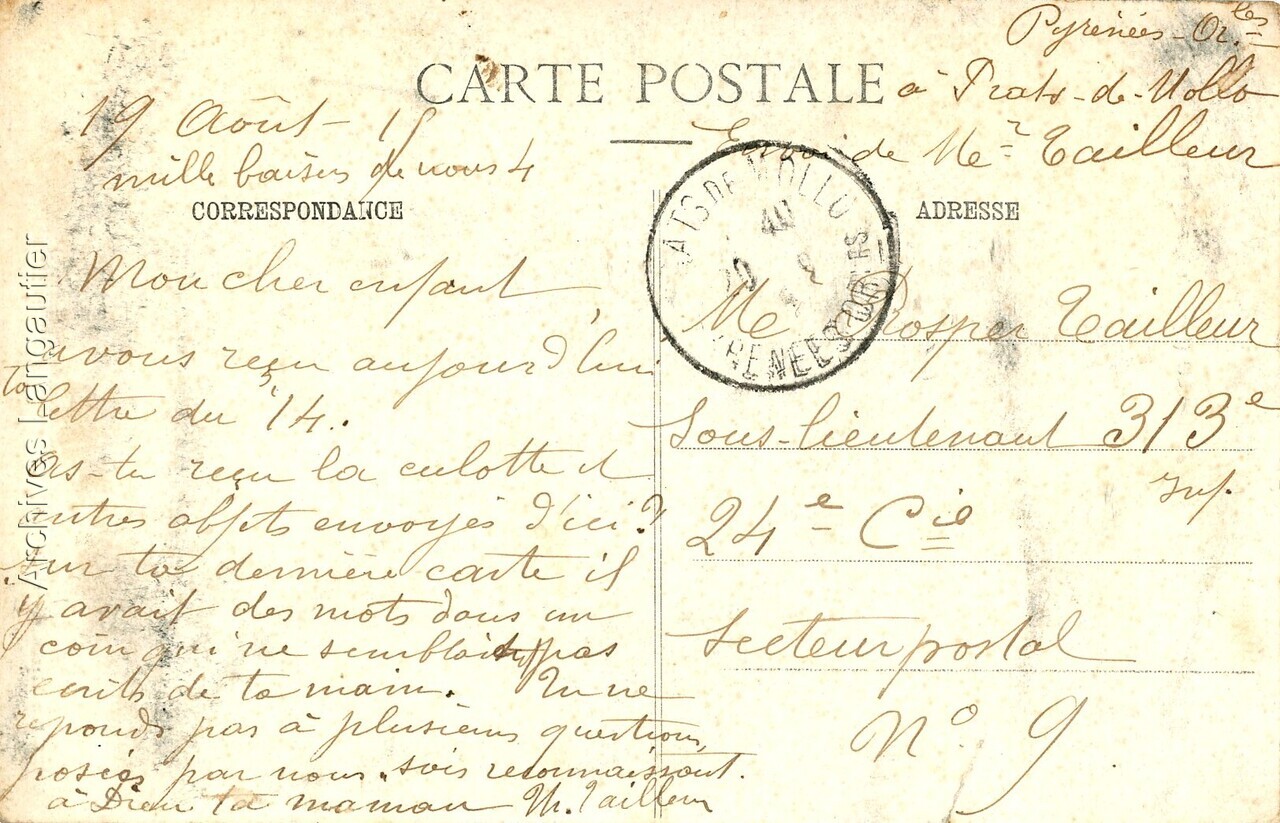 Pyrénées-Or.les
CARTE POSTALE
à Prats-de-Mollo
19 Août - 15
Envoi de Me Tailleur
mille baisers de nous 4
CORRESPONDANCE
ADRESSE
ATS DE MOLLO
20
PYRENEES-OR
Mon cher enfant
avons reçu aujourd'hui
ta lettre du 14.
as-tu reçu la culotte et
autres objets envoyés d'ici ?
sur ta dernière carte il
y avait des mots dans un
coin qui ne semblaient pas
écrits de ta main. Tu ne
réponds pas à plusieurs questions
posées par nous. sois reconnaissant.
à Dieu ta maman Th. Tailleur
Mr Prosper Tailleur
Sous-lieutenant 313e
Inf.
24e Cie
Secteur postal
N° 9
Archives Langautier